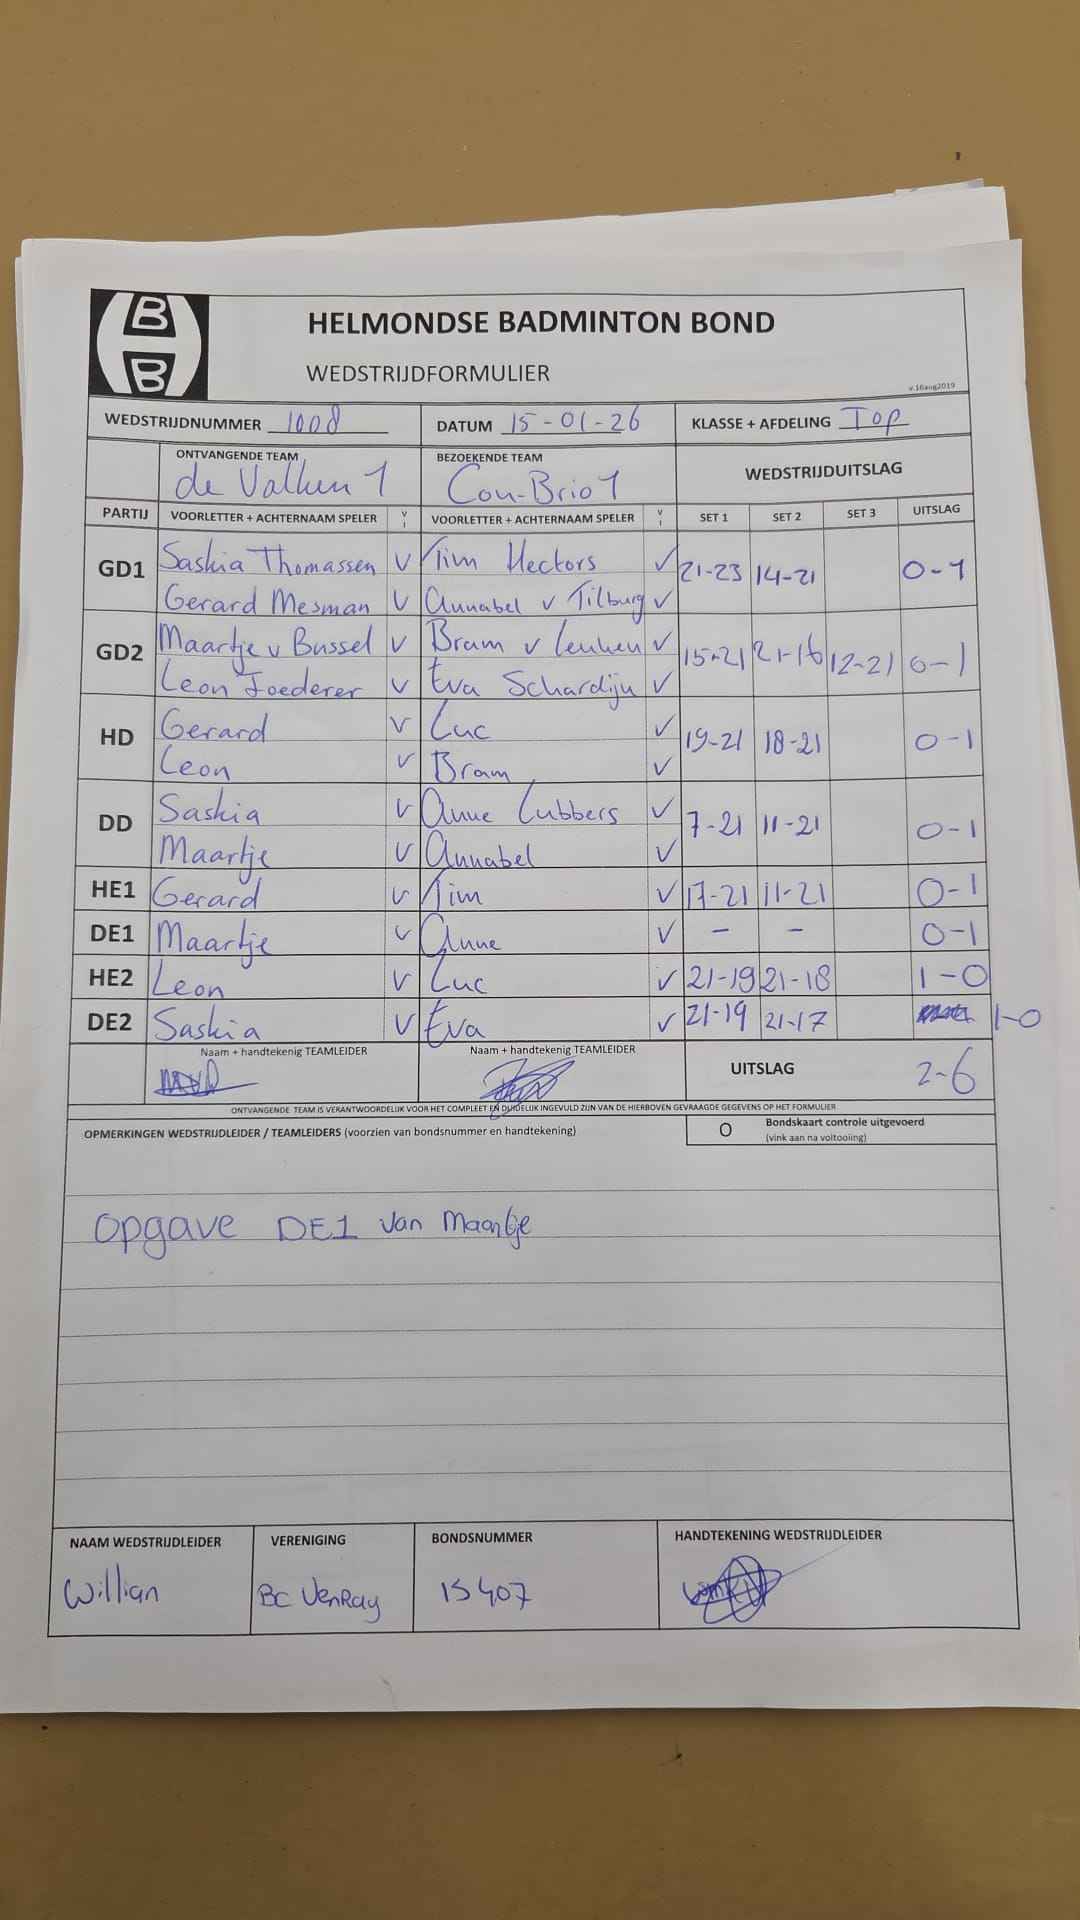 B
B
HELMONDSE BADMINTON BOND
WEDSTRIJDFORMULIER
v.16aug2019
WEDSTRIJDNUMMER 1008 DATUM 15-01-26 KLASSE + AFDELING Top
ONTVANGENDE TEAM BEZOEKENDE TEAM WEDSTRIJDUITSLAG
de Valken 1 Con-Brio 1
PARTIJ VOORLETTER + ACHTERNAAM SPELER V I VOORLETTER + ACHTERNAAM SPELER V I SET 1 SET 2 SET 3 UITSLAG
GD1 Saskia Thomassen V Tim Hectors ✓ 21-23 14-21 0-1
Gerard Mesman V Annabel v Tilburg ✓
GD2 Maartje v Bussel V Bram v Leuken ✓ 15-21 21-16 12-21 0-1
Leon Foederer V Eva Schardijn ✓
HD Gerard V Luc ✓ 19-21 18-21 0-1
Leon V Bram ✓
DD Saskia V Anne Lubbers ✓ 7-21 11-21 0-1
Maartje V Annabel ✓
HE1 Gerard V Tim ✓ 17-21 11-21 0-1
DE1 Maartje V Anne ✓ - - 0-1
HE2 Leon V Luc ✓ 21-19 21-18 1-0
DE2 Saskia V Eva ✓ 21-19 21-17 1-0
Naam + handtekenig TEAMLEIDER Naam + handtekenig TEAMLEIDER UITSLAG 2-6
ONTVANGENDE TEAM IS VERANTWOORDELIJK VOOR HET COMPLEET EN DUIDELIJK INGEVULD ZIJN VAN DE HIERBOVEN GEVRAAGDE GEGEVENS OP HET FORMULIER
OPMERKINGEN WEDSTRIJDLEIDER / TEAMLEIDERS (voorzien van bondsnummer en handtekening) O Bondskaart controle uitgevoerd
(vink aan na voltooiing)
opgave DE1 van Maartje
NAAM WEDSTRIJDLEIDER VERENIGING BONDSNUMMER HANDTEKENING WEDSTRIJDLEIDER
Willian BC VenRay 15407